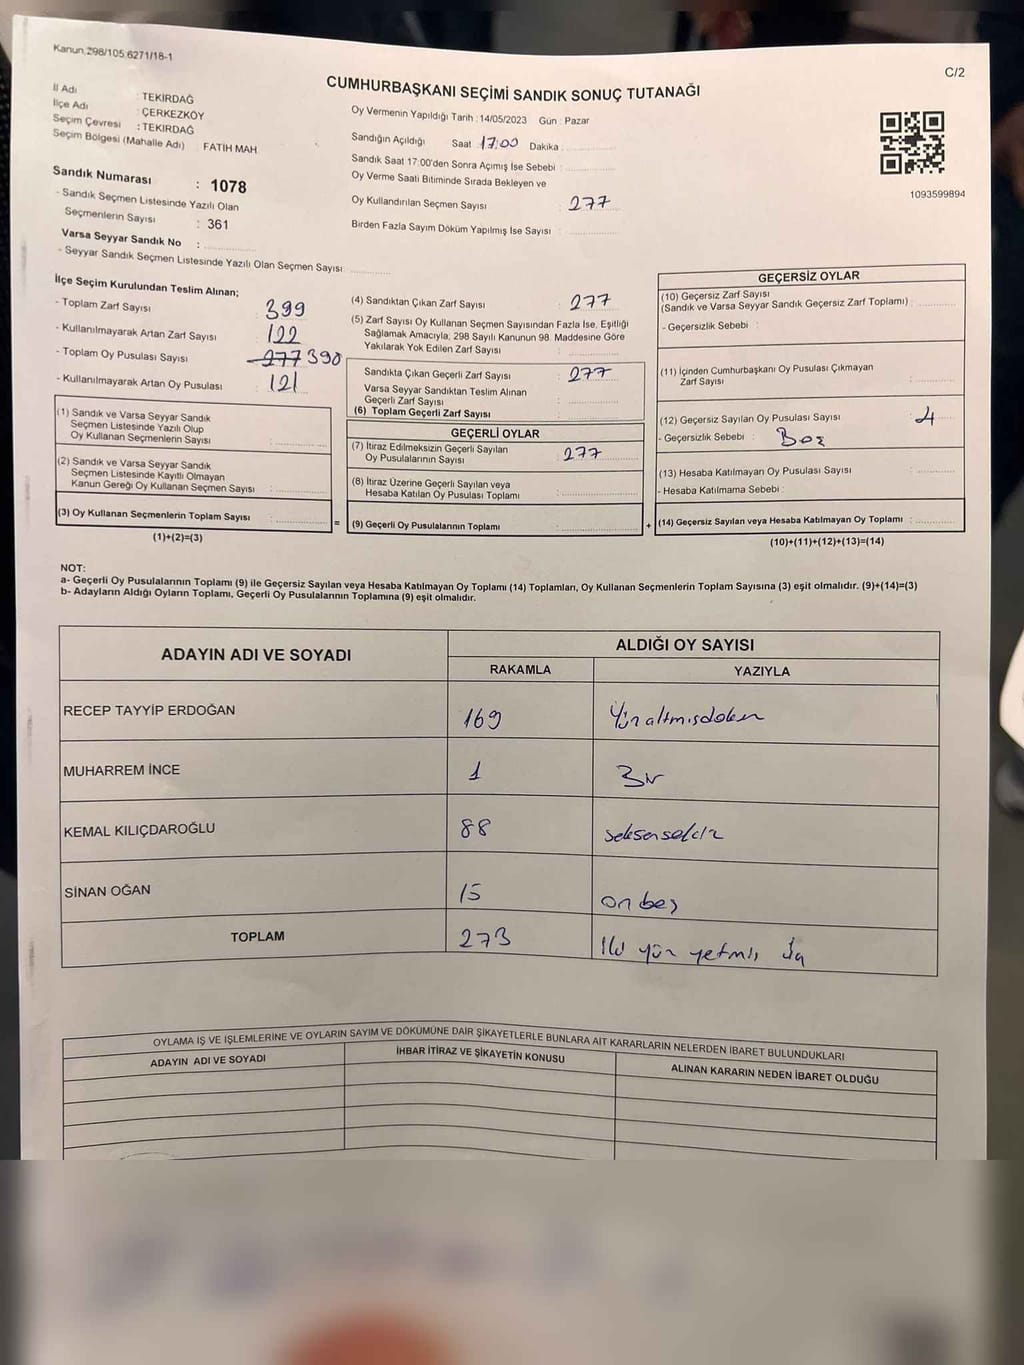 Kanun 298/105 6271/18-1
C/2
CUMHURBAŞKANI SEÇİMİ SANDIK SONUÇ TUTANAĞI
İl Adı : TEKİRDAĞ
İlçe Adı : ÇERKEZKÖY
Seçim Çevresi : TEKİRDAĞ
Seçim Bölgesi (Mahalle Adı) : FATİH MAH.
Sandık Numarası : 1078
- Sandık Seçmen Listesinde Yazılı Olan
Seçmenlerin Sayısı : 361
Varsa Seyyar Sandık No :
- Seyyar Sandık Seçmen Listesinde Yazılı Olan Seçmen Sayısı:
Oy Vermenin Yapıldığı Tarih : 14/05/2023 Gün : Pazar
Sandığın Açıldığı Saat 17:00 Dakika :
Sandık Saat 17:00'den Sonra Açımış İse Sebebi :
Oy Verme Saati Bitiminde Sırada Bekleyen ve
Oy Kullandırılan Seçmen Sayısı : 277
Birden Fazla Sayım Döküm Yapılmış İse Sayısı :
1093599894
İlçe Seçim Kurulundan Teslim Alınan;
- Toplam Zarf Sayısı : 399
- Kullanılmayarak Artan Zarf Sayısı : 122
- Toplam Oy Pusulası Sayısı : 277 398
- Kullanılmayarak Artan Oy Pusulası : 121
(1) Sandık ve Varsa Seyyar Sandık
Seçmen Listesinde Yazılı Olup
Oy Kullanan Seçmenlerin Sayısı :
(2) Sandık ve Varsa Seyyar Sandık
Seçmen Listesinde Kayıtlı Olmayan
Kanun Gereği Oy Kullanan Seçmen Sayısı :
(3) Oy Kullanan Seçmenlerin Toplam Sayısı : =
(1)+(2)=(3)
(4) Sandıktan Çıkan Zarf Sayısı : 277
(5) Zarf Sayısı Oy Kullanan Seçmen Sayısından Fazla İse, Eşitliği
Sağlamak Amacıyla, 298 Sayılı Kanunun 98. Maddesine Göre
Yakılarak Yok Edilen Zarf Sayısı :
Sandıkta Çıkan Geçerli Zarf Sayısı : 277
Varsa Seyyar Sandıktan Teslim Alınan
Geçerli Zarf Sayısı :
(6) Toplam Geçerli Zarf Sayısı :
GEÇERLİ OYLAR
(7) İtiraz Edilmeksizin Geçerli Sayılan
Oy Pusulalarının Sayısı : 277
(8) İtiraz Üzerine Geçerli Sayılan veya
Hesaba Katılan Oy Pusulası Toplamı :
(9) Geçerli Oy Pusulalarının Toplamı : +
GEÇERSİZ OYLAR
(10) Geçersiz Zarf Sayısı
(Sandık ve Varsa Seyyar Sandık Geçersiz Zarf Toplamı) :
- Geçersizlik Sebebi :
(11) İçinden Cumhurbaşkanı Oy Pusulası Çıkmayan
Zarf Sayısı :
(12) Geçersiz Sayılan Oy Pusulası Sayısı : 4
- Geçersizlik Sebebi : Boş
(13) Hesaba Katılmayan Oy Pusulası Sayısı :
- Hesaba Katılmama Sebebi :
(14) Geçersiz Sayılan veya Hesaba Katılmayan Oy Toplamı :
(10)+(11)+(12)+(13)=(14)
NOT:
a- Geçerli Oy Pusulalarının Toplamı (9) ile Geçersiz Sayılan veya Hesaba Katılmayan Oy Toplamı (14) Toplamları, Oy Kullanan Seçmenlerin Toplam Sayısına (3) eşit olmalıdır. (9)+(14)=(3)
b- Adayların Aldığı Oyların Toplamı, Geçerli Oy Pusulalarının Toplamına (9) eşit olmalıdır.
ADAYIN ADI VE SOYADI ALDIĞI OY SAYISI
RAKAMLA YAZIYLA
RECEP TAYYİP ERDOĞAN 169 Yüz altmışdokuz
MUHARREM İNCE 1 Bir
KEMAL KILIÇDAROĞLU 88 seksensekiz
SİNAN OĞAN 15 on beş
TOPLAM 273 İki yüz yetmiş üç
OYLAMA İŞ VE İŞLEMLERİNE VE OYLARIN SAYIM VE DÖKÜMÜNE DAİR ŞİKAYETLERLE BUNLARA AİT KARARLARIN NELERDEN İBARET BULUNDUKLARI
ADAYIN ADI VE SOYADI İHBAR İTİRAZ VE ŞİKAYETİN KONUSU ALINAN KARARIN NEDEN İBARET OLDUĞU